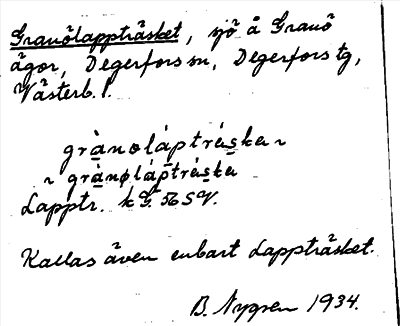 Granölappträsket, sjö å Granö
ägor, Degerfors sn, Degerfors tg,
Västerb. l.
grànoláptráska ~
~ grànøláptráska
Lapptr. kG. 56 SV.
Kallas även enbart Lappträsket.
B. Nygren 1934.